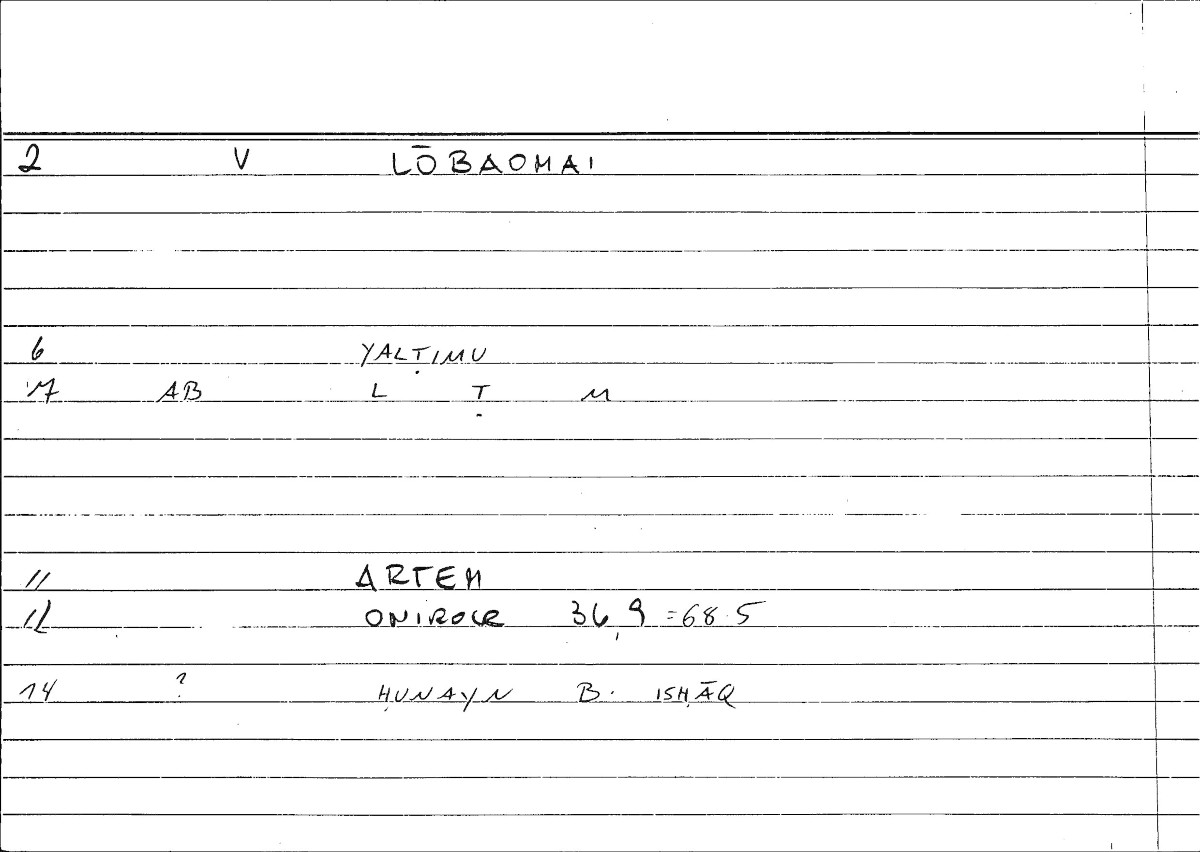 2 V LŌBAOMAI
6 YALṬIMU
17 AB L Ṭ M
11 ARTEM
12 ONIROCR 36,9 =68.5
14 ? ḤUNAYN B. ISḤĀQ